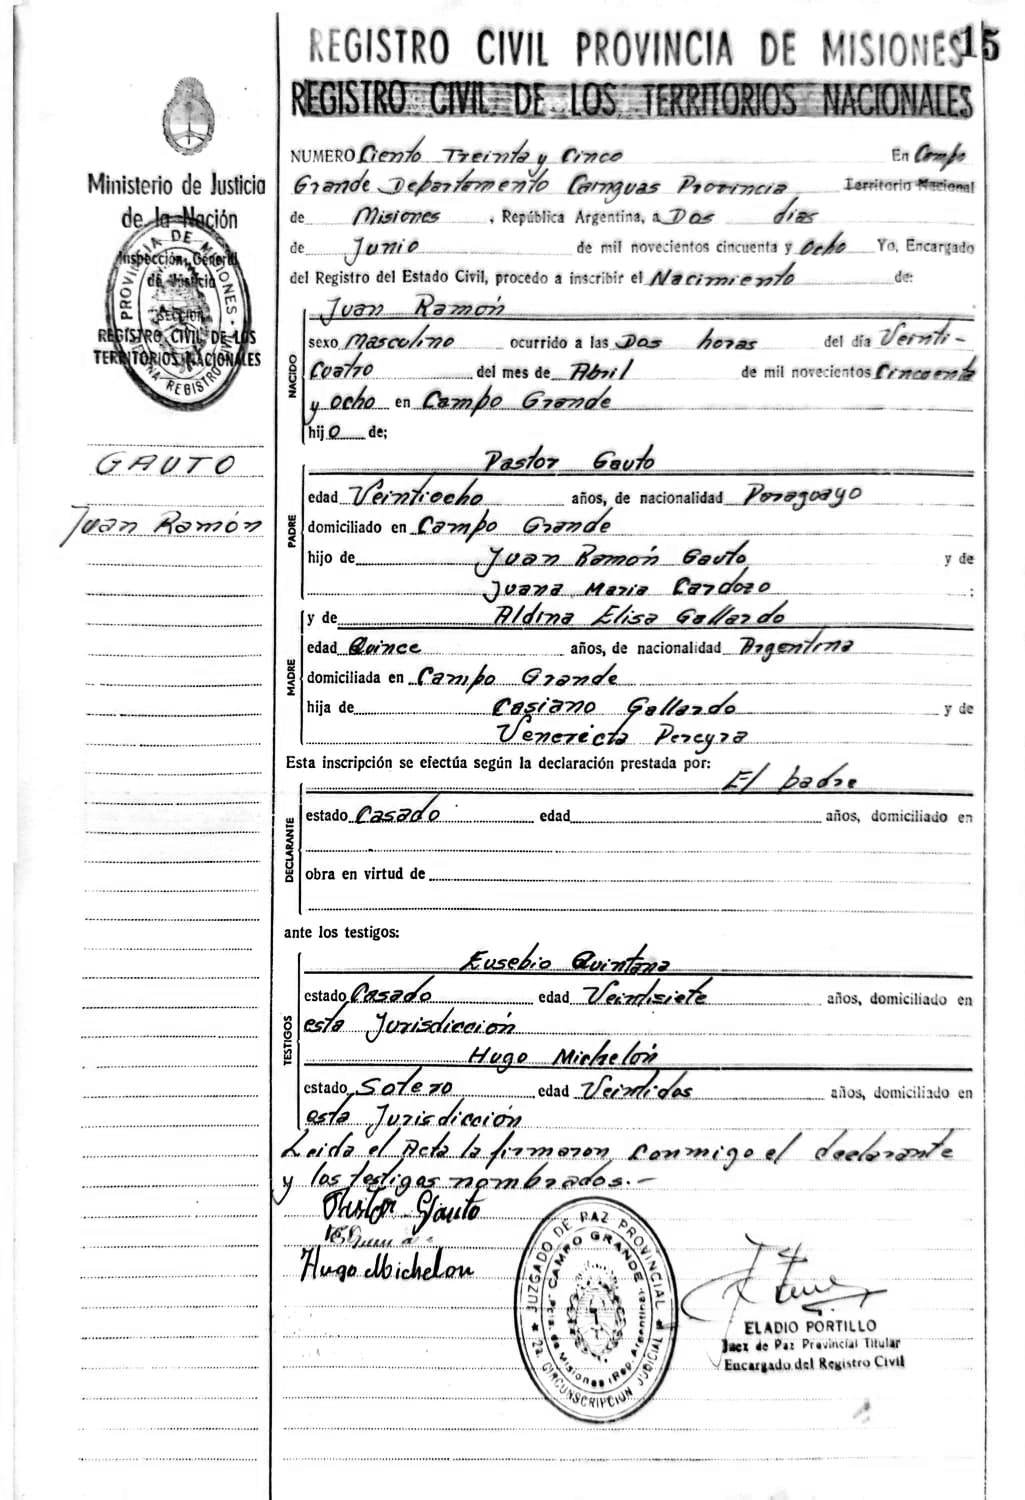 15
REGISTRO CIVIL PROVINCIA DE MISIONES
REGISTRO CIVIL DE LOS TERRITORIOS NACIONALES
Ministerio de Justicia
de la Nación
Inspección General
de Justicia
SECCION
REGISTRO CIVIL DE LOS
TERRITORIOS NACIONALES
PROVINCIA DE MISIONES
GAUTO
Juan Ramón
NUMERO Ciento Treinta y Cinco En Campo
Grande Departamento Cainguas Provincia Territorio Nacional
de Misiones, República Argentina, a Dos días
de Junio de mil novecientos cincuenta y Ocho Yo, Encargado
del Registro del Estado Civil, procedo a inscribir el Nacimiento de:
NACIDO
Juan Ramón
sexo Masculino ocurrido a las Dos horas del día Veinti-
Cuatro del mes de Abril de mil novecientos Cincuenta
y Ocho en Campo Grande
hijo de;
PADRE
Pastor Gauto
edad Veintiocho años, de nacionalidad Paraguayo
domiciliado en Campo Grande
hijo de Juan Ramón Gauto y de
Juana Maria Cardozo ;
MADRE
y de Aldina Elisa Gallardo
edad Quince años, de nacionalidad Argentina
domiciliada en Campo Grande
hija de Casiano Gallardo y de
Pereyra
Esta inscripción se efectúa según la declaración prestada por:
El padre
DECLARANTE
estado Casado edad años, domiciliado en
obra en virtud de
ante los testigos:
TESTIGOS
Eusebio Quintana
estado Casado edad Veintisiete años, domiciliado en
esta Jurisdicción
Hugo Michelón
estado Soltero edad Veintidos años, domiciliado en
esta Jurisdicción
Leida el Acta la firmaron conmigo el declarante
y los testigos nombrados.-
Pastor Gauto
Hugo Michelon
JUZGADO DE PAZ PROVINCIAL
CAMPO GRANDE
Pcia. de Misiones (Rep. Argentina)
2a. CIRCUNSCRIPCION JUDICIAL
ELADIO PORTILLO
Juez de Paz Provincial Titular
Encargado del Registro Civil